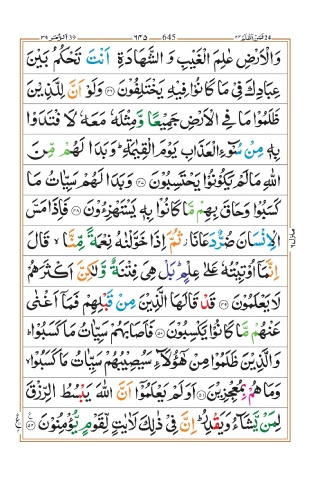 الزمر ٣٩ ٦٤٥ 645 فمن اظلم ٢٤
وَالْاَرْضِ عٰلِمَ الْغَيْبِ وَ الشَّهَادَةِ اَنْتَ تَحْكُمُ بَيْنَ
عِبَادِكَ فِيْ مَا كَانُوْا فِيْهِ يَخْتَلِفُوْنَ ۝۴۶ وَلَوْ اَنَّ لِلَّذِيْنَ
ظَلَمُوْا مَا فِي الْاَرْضِ جَمِيْعًا وَّمِثْلَهٗ مَعَهٗ لَافْتَدَوْا
بِهٖ مِنْ سُوْٓءِ الْعَذَابِ يَوْمَ الْقِيٰمَةِ ؕ وَبَدَا لَهُمْ مِّنَ
اللّٰهِ مَا لَمْ يَكُوْنُوْا يَحْتَسِبُوْنَ ۝۴۷ وَبَدَا لَهُمْ سَيِّاٰتُ مَا
كَسَبُوْا وَحَاقَ بِهِمْ مَّا كَانُوْا بِهٖ يَسْتَهْزِءُوْنَ ۝۴۸ فَاِذَا مَسَّ
الْاِنْسَانَ ضُرٌّ دَعَانَا ز ثُمَّ اِذَا خَوَّلْنٰهُ نِعْمَةً مِّنَّا ۙ قَالَ
اِنَّمَاۤ اُوْتِيْتُهٗ عَلٰى عِلْمٍ ؕ بَلْ هِيَ فِتْنَةٌ وَّلٰكِنَّ اَكْثَرَهُمْ
لَا يَعْلَمُوْنَ ۝۴۹ قَدْ قَالَهَا الَّذِيْنَ مِنْ قَبْلِهِمْ فَمَاۤ اَغْنٰى
عَنْهُمْ مَّا كَانُوْا يَكْسِبُوْنَ ۝۵۰ فَاَصَابَهُمْ سَيِّاٰتُ مَا كَسَبُوْا ؕ
وَالَّذِيْنَ ظَلَمُوْا مِنْ هٰۤؤُلَآءِ سَيُصِيْبُهُمْ سَيِّاٰتُ مَا كَسَبُوْا ۙ
وَمَا هُمْ بِمُعْجِزِيْنَ ۝۵۱ اَوَلَمْ يَعْلَمُوْۤا اَنَّ اللّٰهَ يَبْسُطُ الرِّزْقَ
لِمَنْ يَّشَآءُ وَيَقْدِرُ ؕ اِنَّ فِيْ ذٰلِكَ لَاٰيٰتٍ لِّقَوْمٍ يُّؤْمِنُوْنَ ۝۵۲
منزل ٦